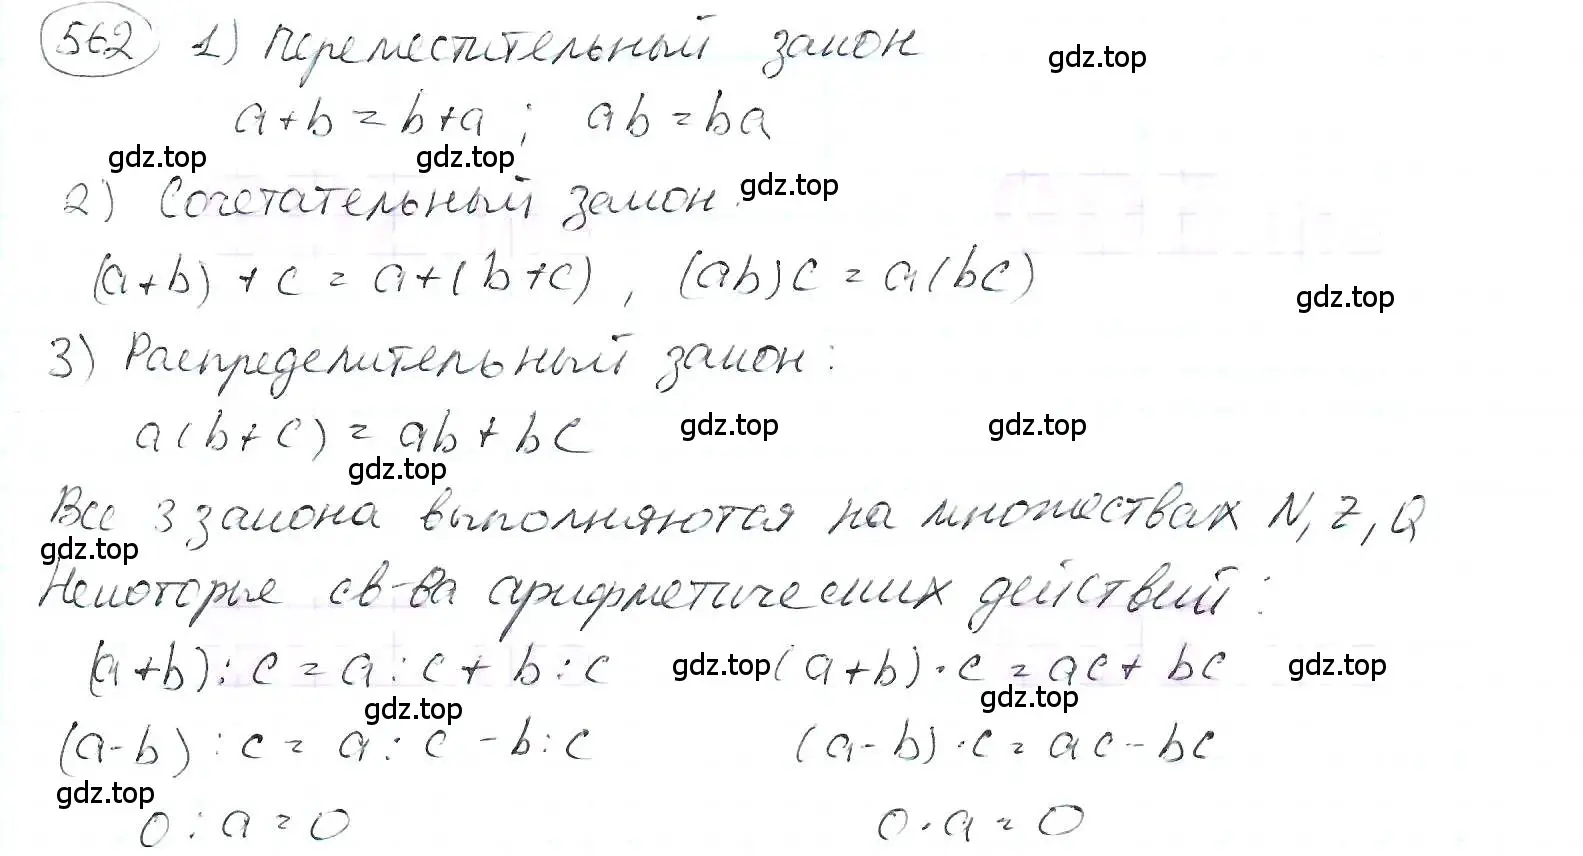 562 1) Переместительный закон gdz.top
a+b=b+a; ab=ba
gdz.top gdz.top
2) Сочетательный закон gdz.top
(a+b)+c=a+(b+c), (ab)c=a(bc)
gdz.top
3) Распределительный закон:
a(b+c)=ab+bc gdz.top gdz.top
gdz.top
Все 3 закона выполняются на множествах N, Z, Q
gdz.top
Некоторые св-ва арифметических действий:
(a+b):c=a:c+b:c gdz.top (a+b)·c=ac+bc gdz.top
gdz.top gdz.top
(a-b):c=a:c-b:c (a-b)·c=ac-bc
gdz.top
0:a=0 0·a=0